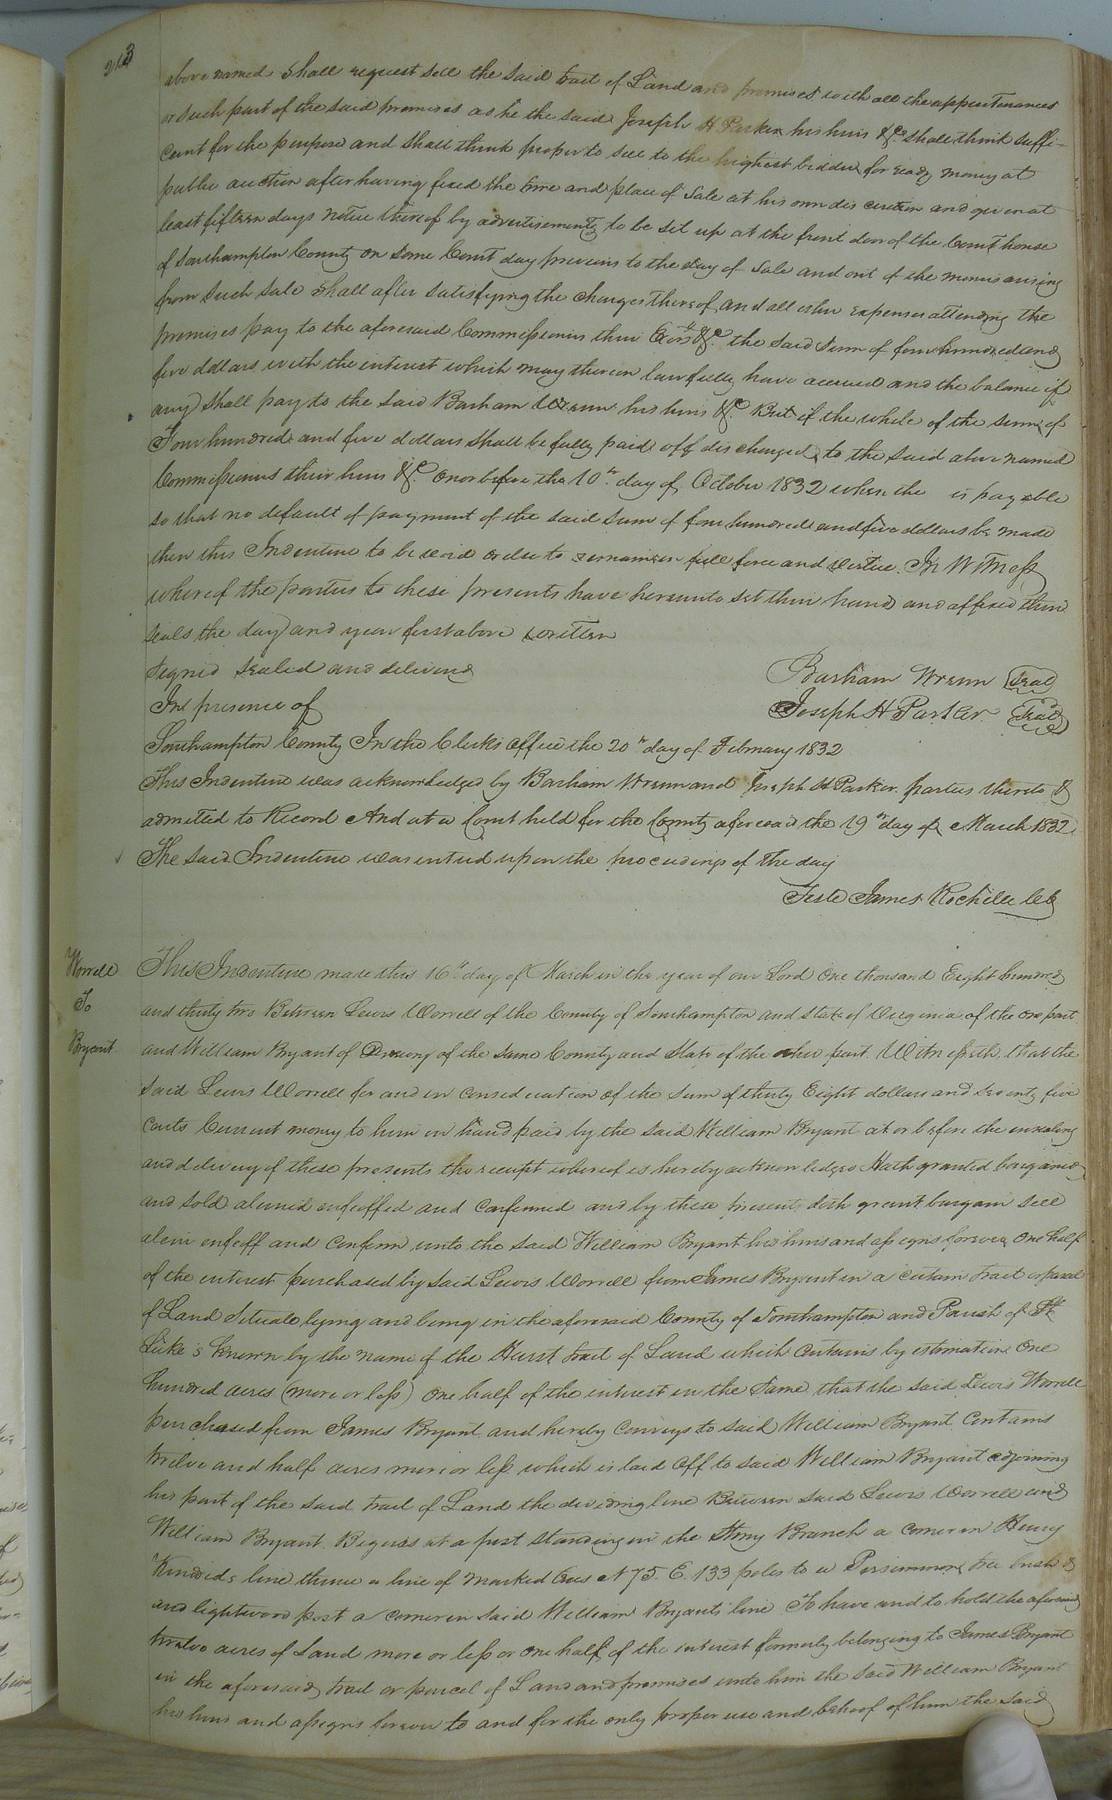 213
above named shall request sell the said tract of Land and premises with all the appurtenances
or such part of the said premises as he the said Joseph H Parker his heirs &c shall think suffi-
cient for the purpose and shall think proper to sell to the highest bidder for ready money at
public auction after having fixed the time and place of Sale at his own discretion and given at
least fifteen days notice thereof by advertisements to be set up at the front door of the Court house
of Southampton County on some Court day previous to the day of Sale and out of the monies arising
from such sale shall after satisfying the charges thereof and all other expenses attending the
premises pay to the aforesaid Commissioners their Exors &c the said sum of four hundred and
five dollars with the interest which may thereon lawfully have accrued and the balance if
any shall pay to the said Barham Wrenn his heirs &c. But if the whole of the sum of
Four hundred and five dollars shall be fully paid off discharged to the said above named
Commissioners their heirs &c. on or before the 10th day of October 1832 when the is payable
so that no default of payment of the said sum of four hundred and five dollars be made
then this Indenture to be void or else to remain in full force and virtue. In Witness
whereof the parties to these presents have hereunto set their hand and affixed their
seals the day and year first above written
Signed Sealed and delivered
In presence of
Barham Wrenn Seal
Joseph H Parker Seal
Southampton County In the Clerks Office the 20th day of February 1832
This Indenture was acknowledged by Barham Wrenn and Joseph H Parker parties thereto &
admitted to Record And at a Court held for the County aforesaid the 19th day of March 1832
The said Indenture was entered upon the proceedings of the day
Teste James Rochelle Clk
Worrell
To
Bryant
This Indenture made this 16th day of March in the year of our Lord One thousand Eight hundred
and thirty two Between Lewis Worrell of the County of Southampton and State of Virginia of the one part
and William Bryant of of the same County and State of the other part. Witnesseth, that the
said Lewis Worrell for and in consideration of the sum of thirty Eight dollars and seventy five
cents Current money to him in hand paid by the said William Bryant at or before the ensealing
and delivery of these presents the receipt whereof is hereby acknowledged Hath granted bargained
and sold aliened enfeoffed and confirmed and by these presents doth grant bargain sell
alien enfeoff and confirm unto the said William Bryant his heirs and assigns forever, One half
of the interest purchased by said Lewis Worrell from James Bryant in a certain tract or parcel
of Land Situate lying and being in the aforesaid County of Southampton and Parish of St
Luke's Known by the name of the Hurst tract of Land which contains by estimation One
hundred acres (more or less) One half of the interest in the Same, that the said Lewis Worrell
purchased from James Bryant and hereby conveys to said William Bryant Contains
twelve and half acres more or less which is laid off to said William Bryant adjoining
his part of the said tract of Land the dividing line Between said Lewis Worrell and
William Bryant. Begins at a post standing in the Stony Branch a corner in Henry
Kindred's line thence a line of marked trees N 75. E. 133 poles to a Persimmon tree bush &
and lightwood post a corner in said William Bryant's line To have and to hold the aforesaid
twelve acres of Land more or less or one half of the interest formerly belonging to James Bryant
in the aforesaid tract or parcel of Land and premises unto him the said William Bryant
his heirs and assigns forever to and for the only proper use and behoof of him the said